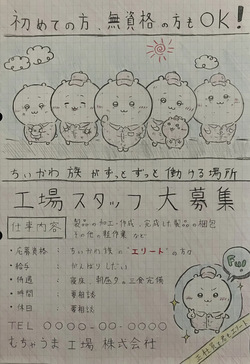 初めての方、無資格の方もOK!
ちいかわ族がずっとずっと働ける場所
工場スタッフ大募集
仕事内容
製品の加工・作成、完成した製品の梱包
その他の軽作業 など
・応募資格 : ちいかわ族の"エリート"の方
・給与 : がんばりしだい
・待遇 : 寝床、朝昼夕の三食完備
・時間 : 要相談
・休日 : 要相談
TEL 0000-00-0000
むちゃうま工場 株式会社